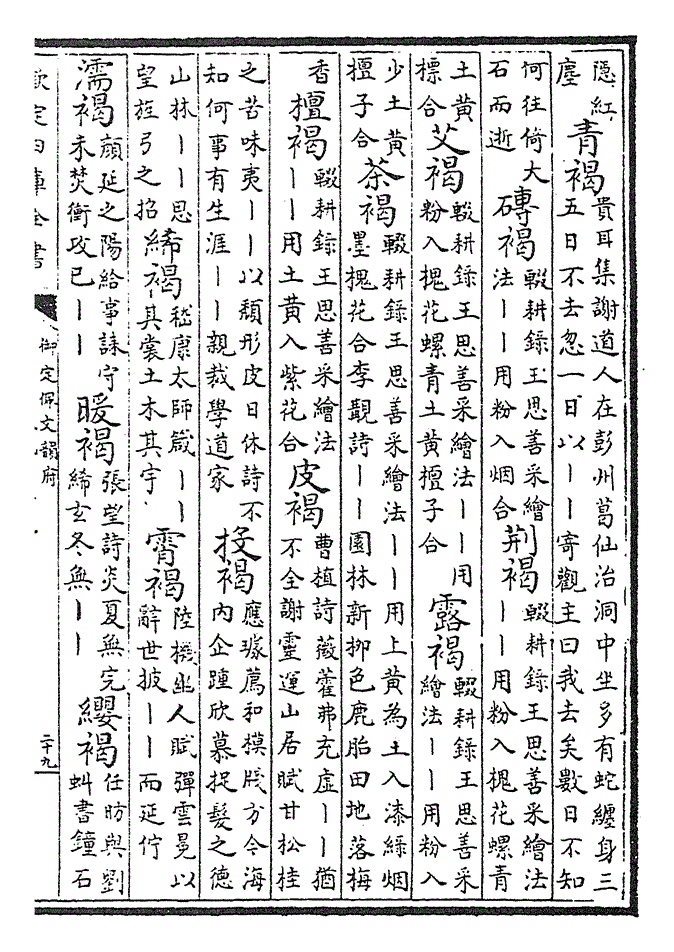 隱紅塵 青褐 貴耳集謝道人在彭州葛仙治洞中坐多有蛇纏身三五日不去忽一日以丨丨寄觀主曰我去矣數日不知
何往倚大石而逝 磚褐 輟耕錄王思善采繪法丨丨用粉入烟合 荆褐 輟耕錄王思善采繪法丨丨用粉入槐花螺青
土黄標合 艾褐 輟耕錄王思善采繪法丨丨用粉入槐花螺青土黄檀子合 露褐 輟耕錄王思善采繪法丨丨用粉入
少土黄檀子合 茶褐 輟耕錄王思善采繪法丨丨用上黄為土入漆綠烟墨槐花合李覯詩丨丨園林新柳色鹿胎田地落梅
香 檀褐 輟耕錄王思善采繪法丨丨用土黄入紫花合 皮褐 曹植詩薇藿弗充虛丨丨猶不全謝靈運山居賦甘松桂
之苦味夷丨丨以頹形皮日休詩不知何事有生涯丨丨親裁學道家 授褐 應璩薦和模牋方今海内企踵欣慕捉髮之德
山林丨丨思望旌弓之招 絺褐 嵇康太師箴丨丨其裳土木其宇 霄褐 陸機幽人賦彈雲冕以辭世披丨丨而延佇
濡褐 顔延之陽給事誄守未焚衝攻已丨丨 暖褐 張望詩炎夏無完絺玄冬無丨丨 纓褐 任昉與劉虯書鐘石
欽定四庫全書
御定佩文韻府
二十九